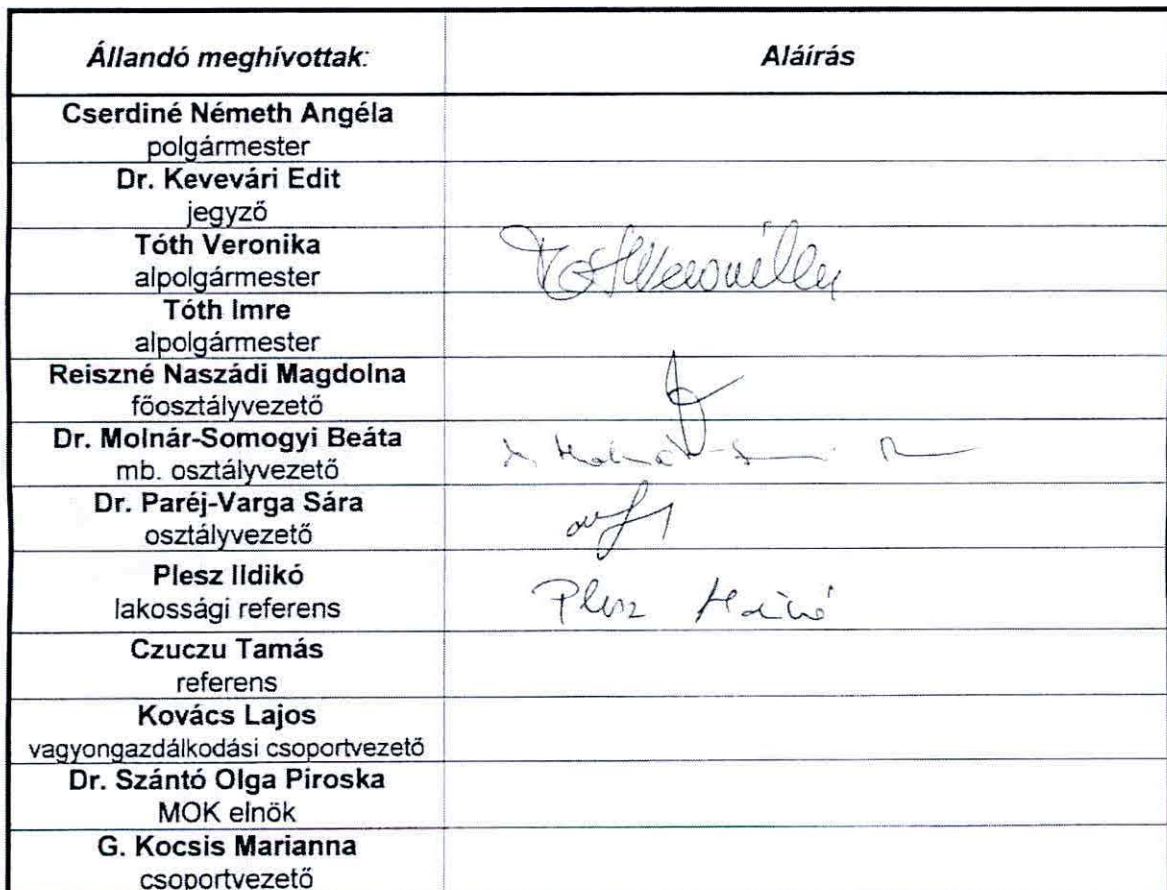 Állandó meghívottak: Aláírás
Cserdiné Németh Angéla
polgármester
Dr. Kevevári Edit
jegyző
Tóth Veronika
alpolgármester
Tóth Imre
alpolgármester
Reiszné Naszádi Magdolna
főosztályvezető
Dr. Molnár-Somogyi Beáta
mb. osztályvezető
Dr. Paréj-Varga Sára
osztályvezető
Plesz Ildikó
lakossági referens
Plesz Ildikó
Czuczu Tamás
referens
Kovács Lajos
vagyongazdálkodási csoportvezető
Dr. Szántó Olga Piroska
MOK elnök
G. Kocsis Marianna
csoportvezető